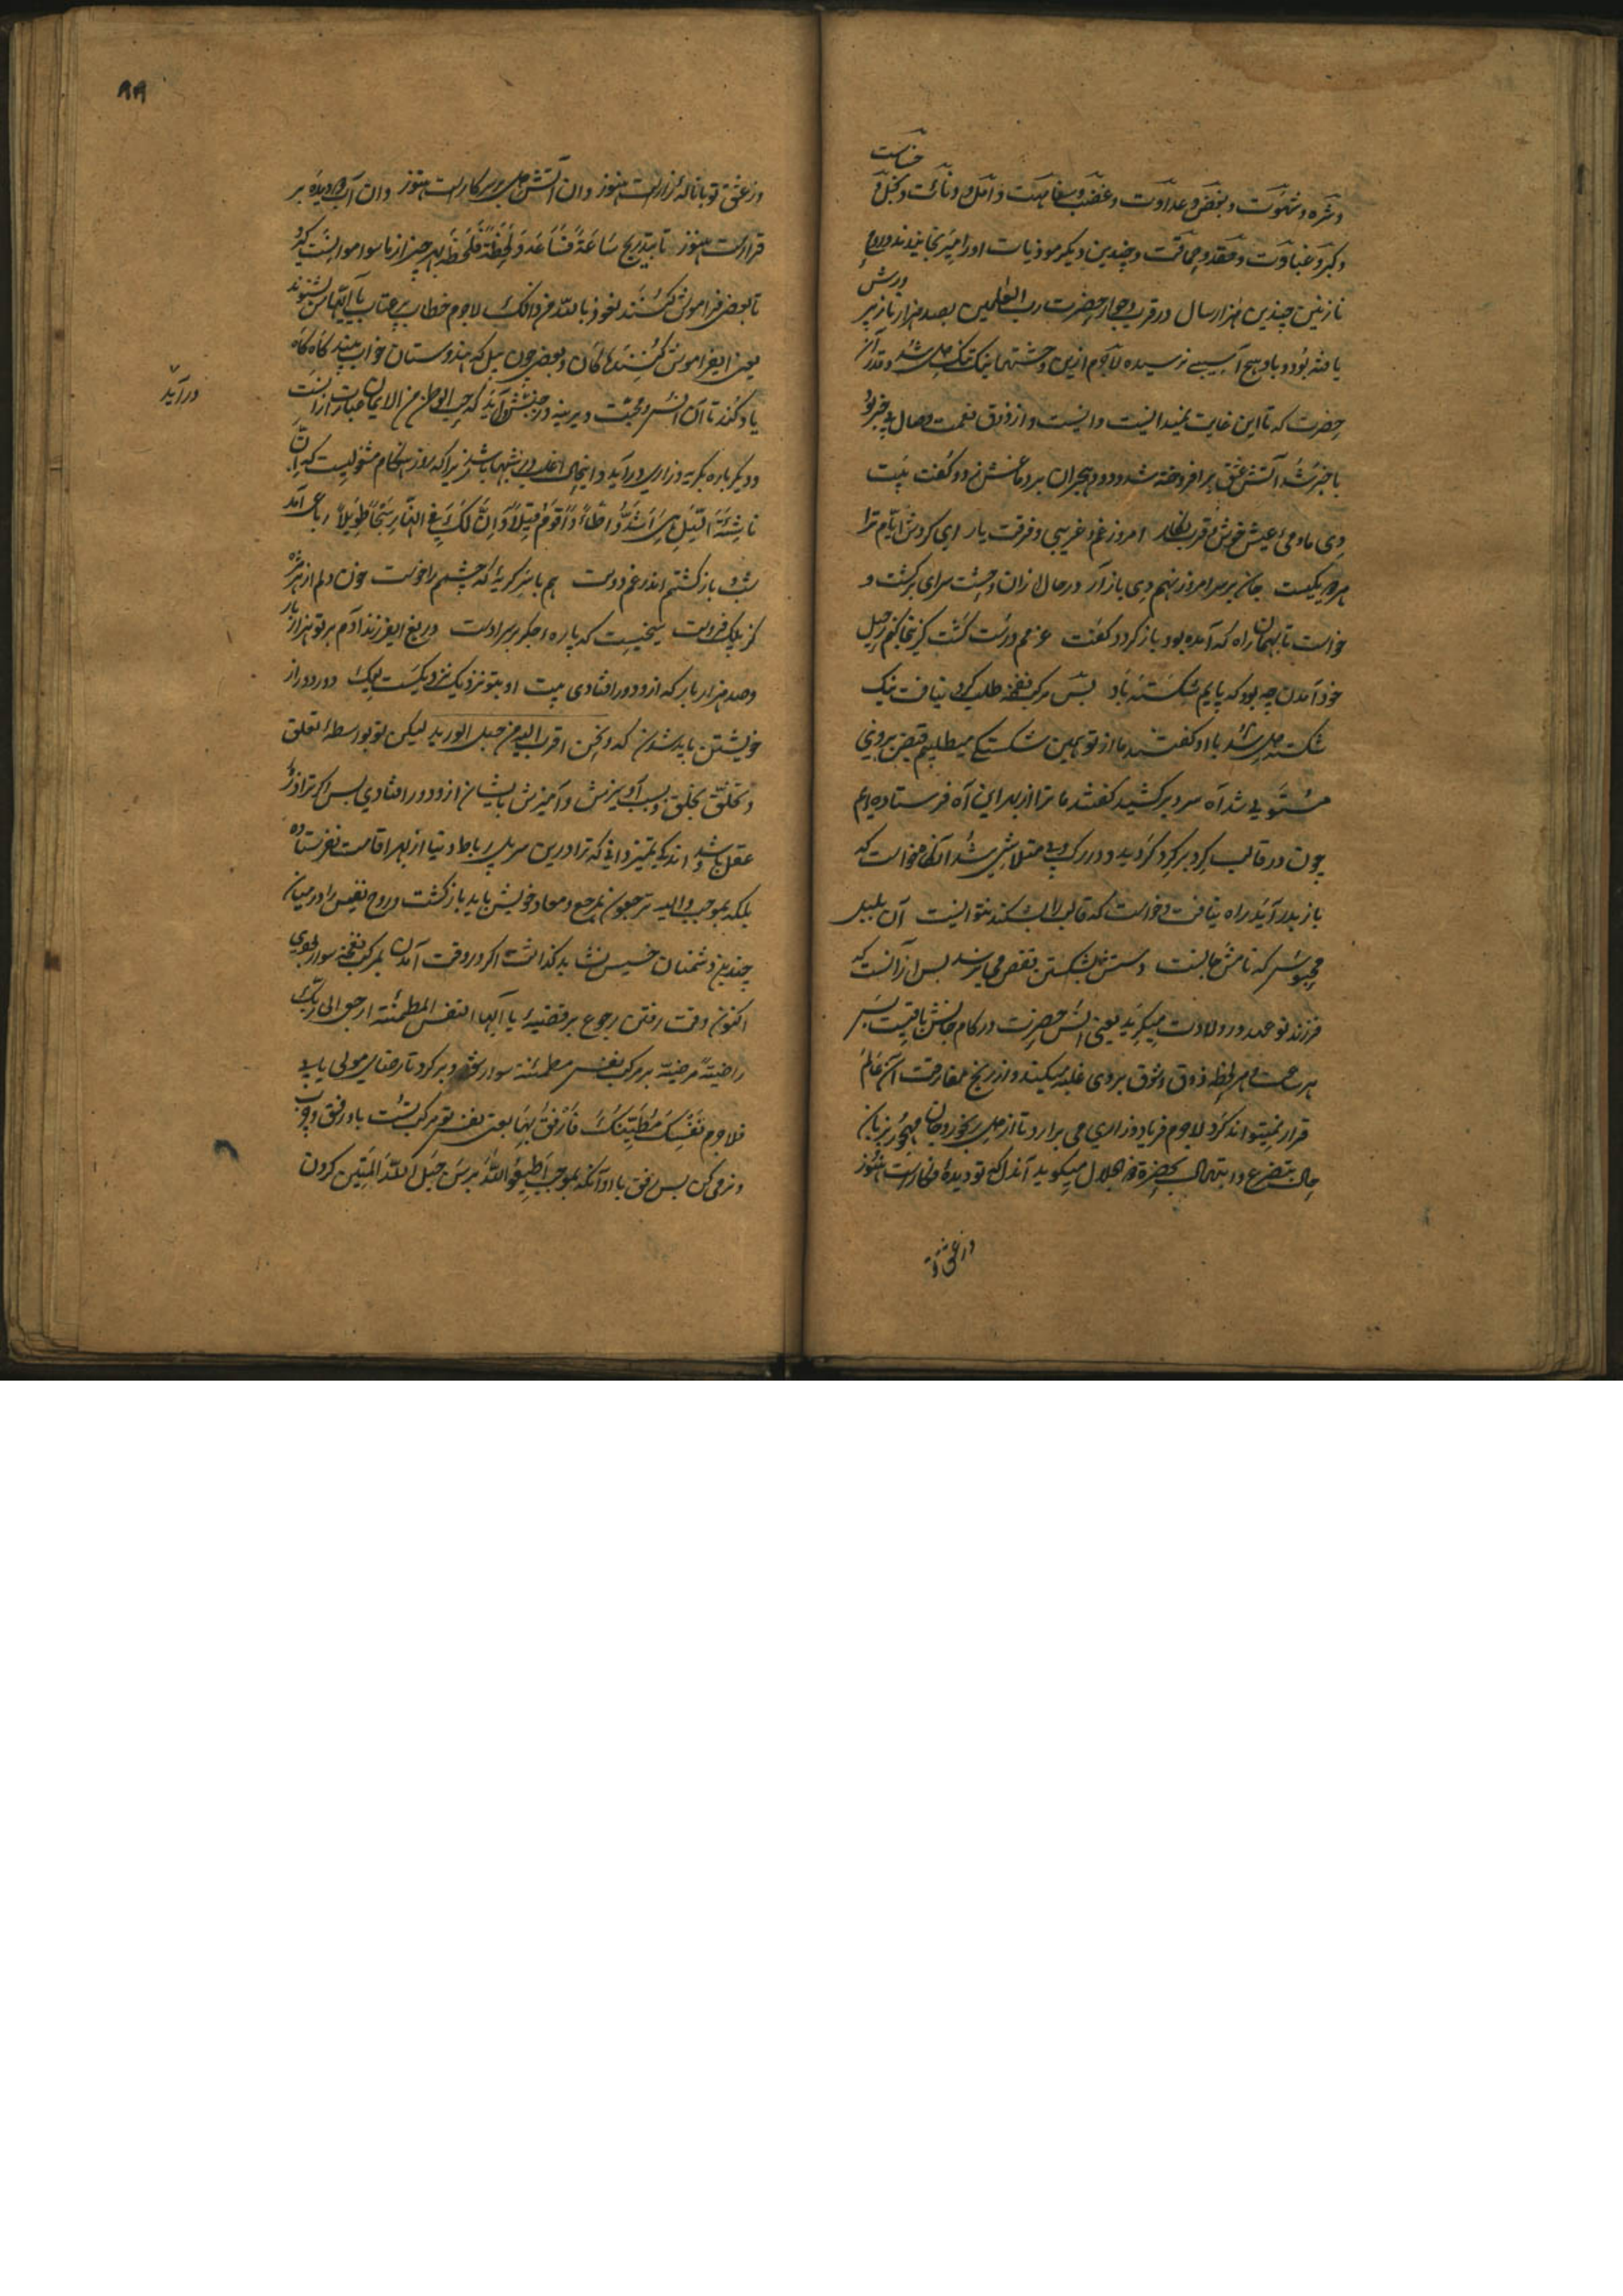 خساست
و شره و شهوت و بغض و عداوت و غضب و سفاهت و امل و دنائت و بخل و
و کبر و غباوت و حقد و حماقت و چندین دیگر موذیات او را میرنجانیدند و روح
نازنین چندین هزار سال در قرب و جوار حضرت رب العلمین بصد هزار ناز پرورش
یافته بود و باو هیچ آسیبی نرسیده لاجرم ازین وحشتها نیک تنگدل شد و قدر آن
حضرت که تا این غایت نمیدانست دانست و از ذوق نعمت وصال بیخبر بود
باخبر شد آتش عشق برافروخته شد و دود هجران بر دماغش زد و گفت بیت
دی ما و می و عیش خوش و قرب نگار امروز غم و غریبی و فرقت یار ای گردش ایام ترا
هر دو یکیست جان بر سر امروز نهم دی باز آر در حال ازان وحشت سرای برگشت و
خواست تا بهمان راه که آمده بود باز گردد گفت عزمم درست گشت کزینجا کنم رحیل
خود آمدن چه بود که پایم شکسته باد پس مرکب نفخه طلب کرد نیافت نیک
شکسته دل شد با او گفتند ما از تو همین شکستگی میطلبیم قبض بر وی
مستولی شد آه سرد برکشید گفتند ما ترا از بهر این آه فرستاده ایم
چون در قالب گرد بر گرد گردید و در رگ و پی متلاشی شد آنگه خواست که
باز بدر آید راه نیافت و خواست که قالب را بشکند نتوانست آن بلبل
محبوس که نامش جانست دستش بشکستن قفص می نرسد پس ازانست که
فرزند نوعهد در ولادت میگرید یعنی انس حضرت در کام جانش باقیست پس
هر ساعت و هر لحظه ذوق و شوق بر وی غلبه میکند و از رنج مفارقت آن عالم
قرار نمیتواند کرد لاجرم فریاد و زاری می برارد تا از دل رنجور و جان مهجور بزبان
حال بتضرع و ابتهال بحضرة ذو الجلال میگوید آندل که تو دیدۀ فگارست هنوز
وز عشق تو
۸۹
وز عشق تو با نالۀ زارست هنوز وان آتش دل بر سر کارست هنوز وان آب دو دیده بر
قرارست هنوز تا بتدریج ساعة فساعة و لحظة فلحظة بهر چیز از ما سوا موانست گیرد
تا بعضی فراموش کنند نعوذ بالله من ذالک لاجرم خطاب پر عتاب یا ایها الناس بشنوند
یعنی ای فراموش کنندگان و بعضی چون پیل که هندوستان خواب بیند گاه گاه
یاد کند تا آن انس و محبت دیرینه در جنبش آید که حب الوطن من الایمان عبارت ازانست
ودیگر باره بگریه و زاری درآید و اینجا اغلب در شبها باشد زیرا که روز هنگام مشغولیست که ان
درآید
ناشئة اللیل هی اشد وطاء و اقوم قیلا و ان لک فی النهار سبحا طویلا رباعی آمد
شب و باز گشتم اندر غم دوست هم با سر گریۀ که چشمم را خوست خون دلم از هر مژه
کز پلک فروست سیخیست که پارۀ جگر بر سر اوست دریغ ای فرزند آدم بر تو هزار بار
و صد هزار بار که ازو دور افتادی بیت او بتو نزدیک نزدیکست لیک دور دور از
خویشتن باید شدن که و نحن اقرب الیه من حبل الورید لیکن تو بواسطۀ تعلق
و تخلق بخلق و بسبب آویزش و آمیزش بایشان ازو دور افتادی پس اگر ترا ذرۀ
عقل باشد و اندکی تمیز دانی که ترا درین سر پل رباط دنیا از بهر اقامت نفرستاده
بلکه بموجب و الیه ترجعون بمرجع و معاد خویش باید باز گشت و روح نفیس را در میان
چندین دشمنان خسیس نشاید گذاشت اگر در وقت آمدن بمرکب نفخه سوار بودی
اکنون وقت رفتن رجوع بر قضیۀ یا ایها النفس المطمئنة ارجعی الی ربک
راضیة مرضیة بر مرکب نفس مطمئنه سوار شو و برگرد تا رضای مولی یابی
فلاجرم نفسک مطیتک فارفق بها یعنی نفس تو مرکب تست با او رفق و
و نرمی کن پس رفق با او آنکه بموجب اطیعوا الله برسن حبل الله المتین گردن